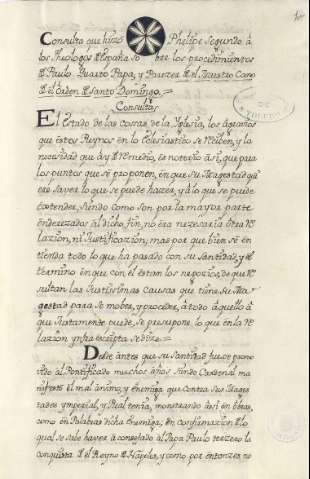 Consulta que hizo Phelipe Segundo á
los Theologos de España sobre los procedimientos
de Paulo Quarto Papa, y Parecer de el Maestro Cano
de el Orden de Santo Domingo.=
Consulta
El Estado de las cosas de la Yglesia, los agravios
que estos Reynos en lo Eclesiastico se reciben, y la
necesidad que ay de remedio, es notorio así, que para
los puntos que se proponen, en que Su Magestad qui
ere saver lo que se puede hacer, y á lo que se puede
extender, siendo como son por la mayor parte
enderezados al dicho fin, no era necesaria otra re
lazion, ni Justificazion, mas por que bien se en
tienda todo lo que ha pasado con su Santidad, y el
termino en que con él estan los negozios, de que re
sultan las Justissimas causas que tiene su Ma
gestad para se mober, y proceder, á todo aquello á
que Justamente puede, se presupone lo que en la re
lazion ynfraescripta se dize.=
Desde antes que su Santidad fuese promo
vido al Pontificado muchos años siendo Cardenal ma
nifestó el mal ánimo, y enemiga que contra sus Mages
tades ymperial, y Real tenia, mostrando asi en obras,
como en Palabras dicha enemiga, en confirmazion de lo
qual se sabe haver aconsejado al Papa Paulo tercero la
conquista de el Reyno de Napoles, y como por entonzes no